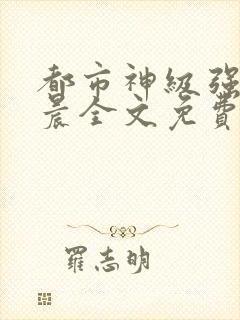 都市神級强
晨全文免費
羅志明